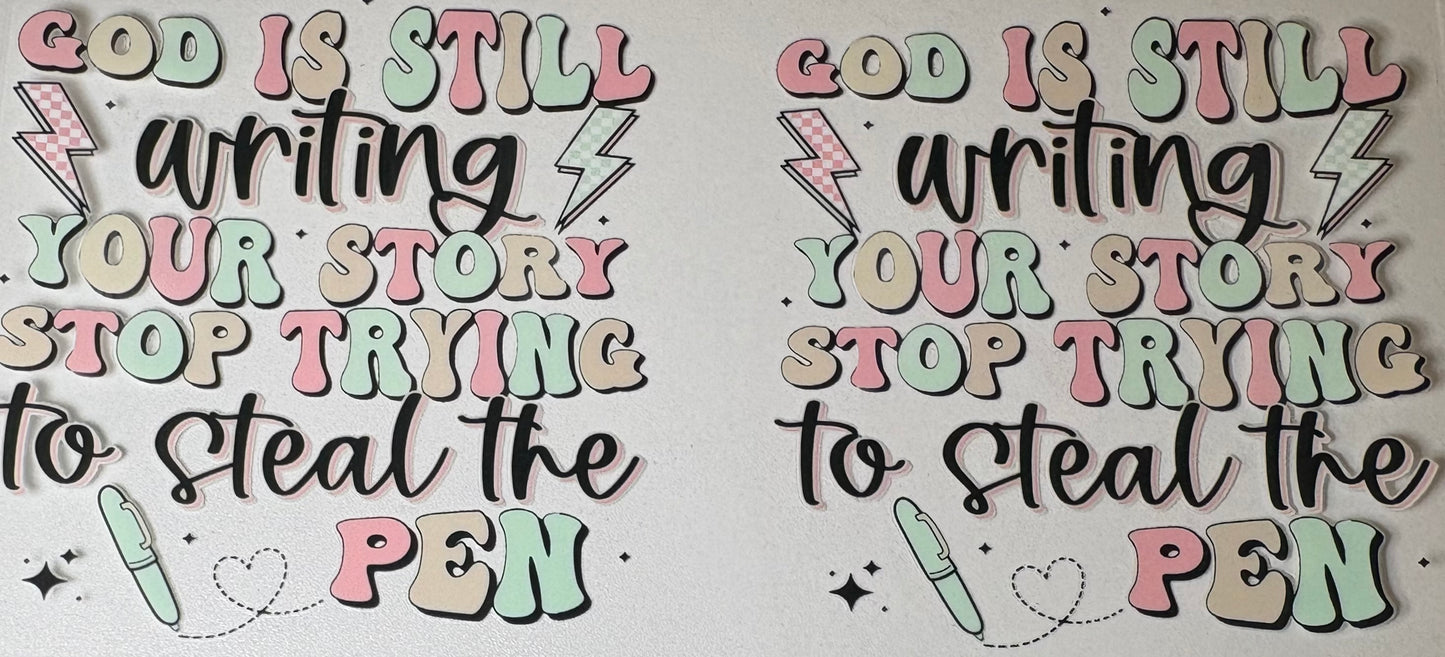 GOD IS STILL
writing
YOUR STORY
STOP TRYING
to steal the
PEN
GOD IS STILL
writing
YOUR STORY
STOP TRYING
to steal the
PEN